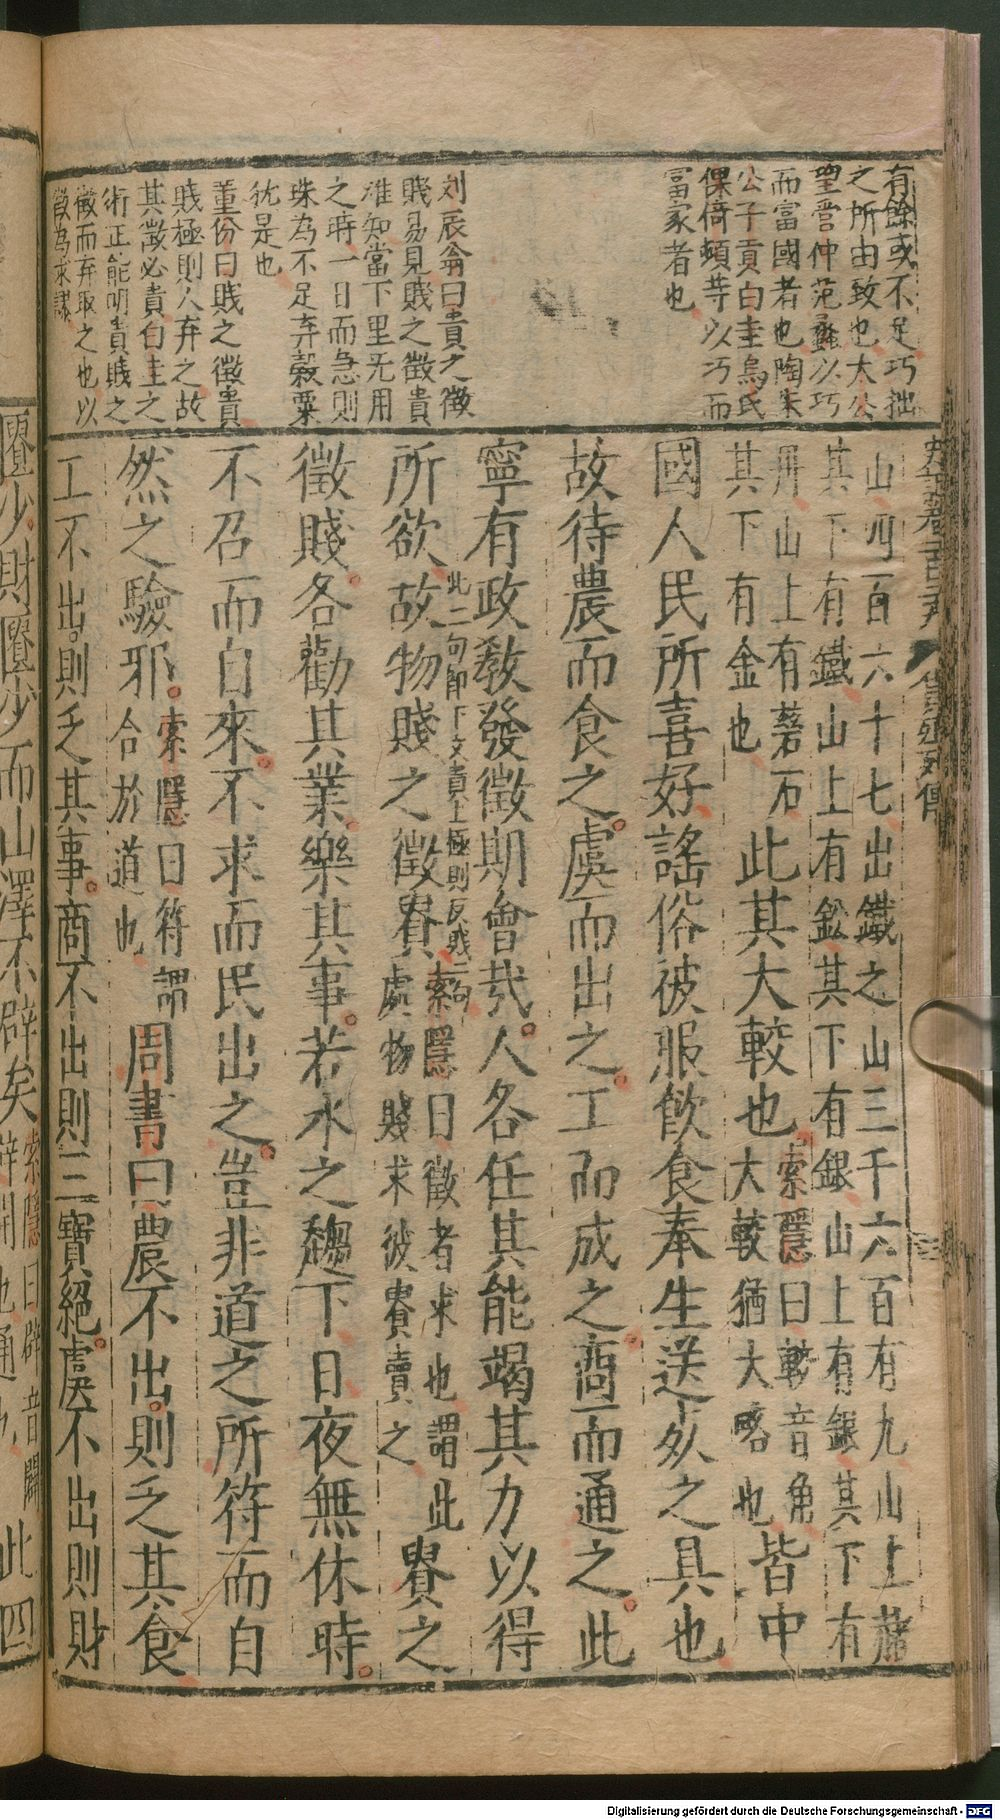 有餘或不足巧拙
之所由致也太公
望管仲范蠡以巧
而富國者也陶朱
公子貢白圭烏氏
倮倚頓等以巧而
富家者也
刘辰翁曰貴之徵
賤易見賤之徵貴
准知當下里无用
之時一日而急則
珠為不足弃穀粟
犹是也
董份曰賤之徵貴
賤極則人弃之故
其徵必貴白圭之
術正能明貴賤之
徵而弃取之也以
徵為求謬
貨殖列傳
山四百六十七出鐵之山三千六百有九山上有赭
其下有鐵山上有鉛其下有銀山上有銀其下有
丹山上有磬石
其下有金也
此其大較也
索隱曰較音角
大較猶大略也
皆中
國人民所喜好謠俗被服飲食奉生送死之具也
故待農而食之虞而出之工而成之商而通之此
寧有政教發徵期會哉人各任其能竭其力以得
所欲故物賤之徵貴
此二句即下文貴上極則反賤二句
索隱曰徵者求也謂此
處物賤求彼貴賣之
貴之
徵賤各勸其業樂其事若水之趨下日夜無休時
不召而自來不求而民出之豈非道之所符而自
然之驗邪
索隱曰符謂
合於道也
周書曰農不出則乏其食
工不出則乏其事商不出則三寶絕虞不出則財
匱少財匱少而山澤不辟矣
索隱曰辟音闢
辟開也通也
此四
Digitalisierung gefördert durch die Deutsche Forschungsgemeinschaft - DFG